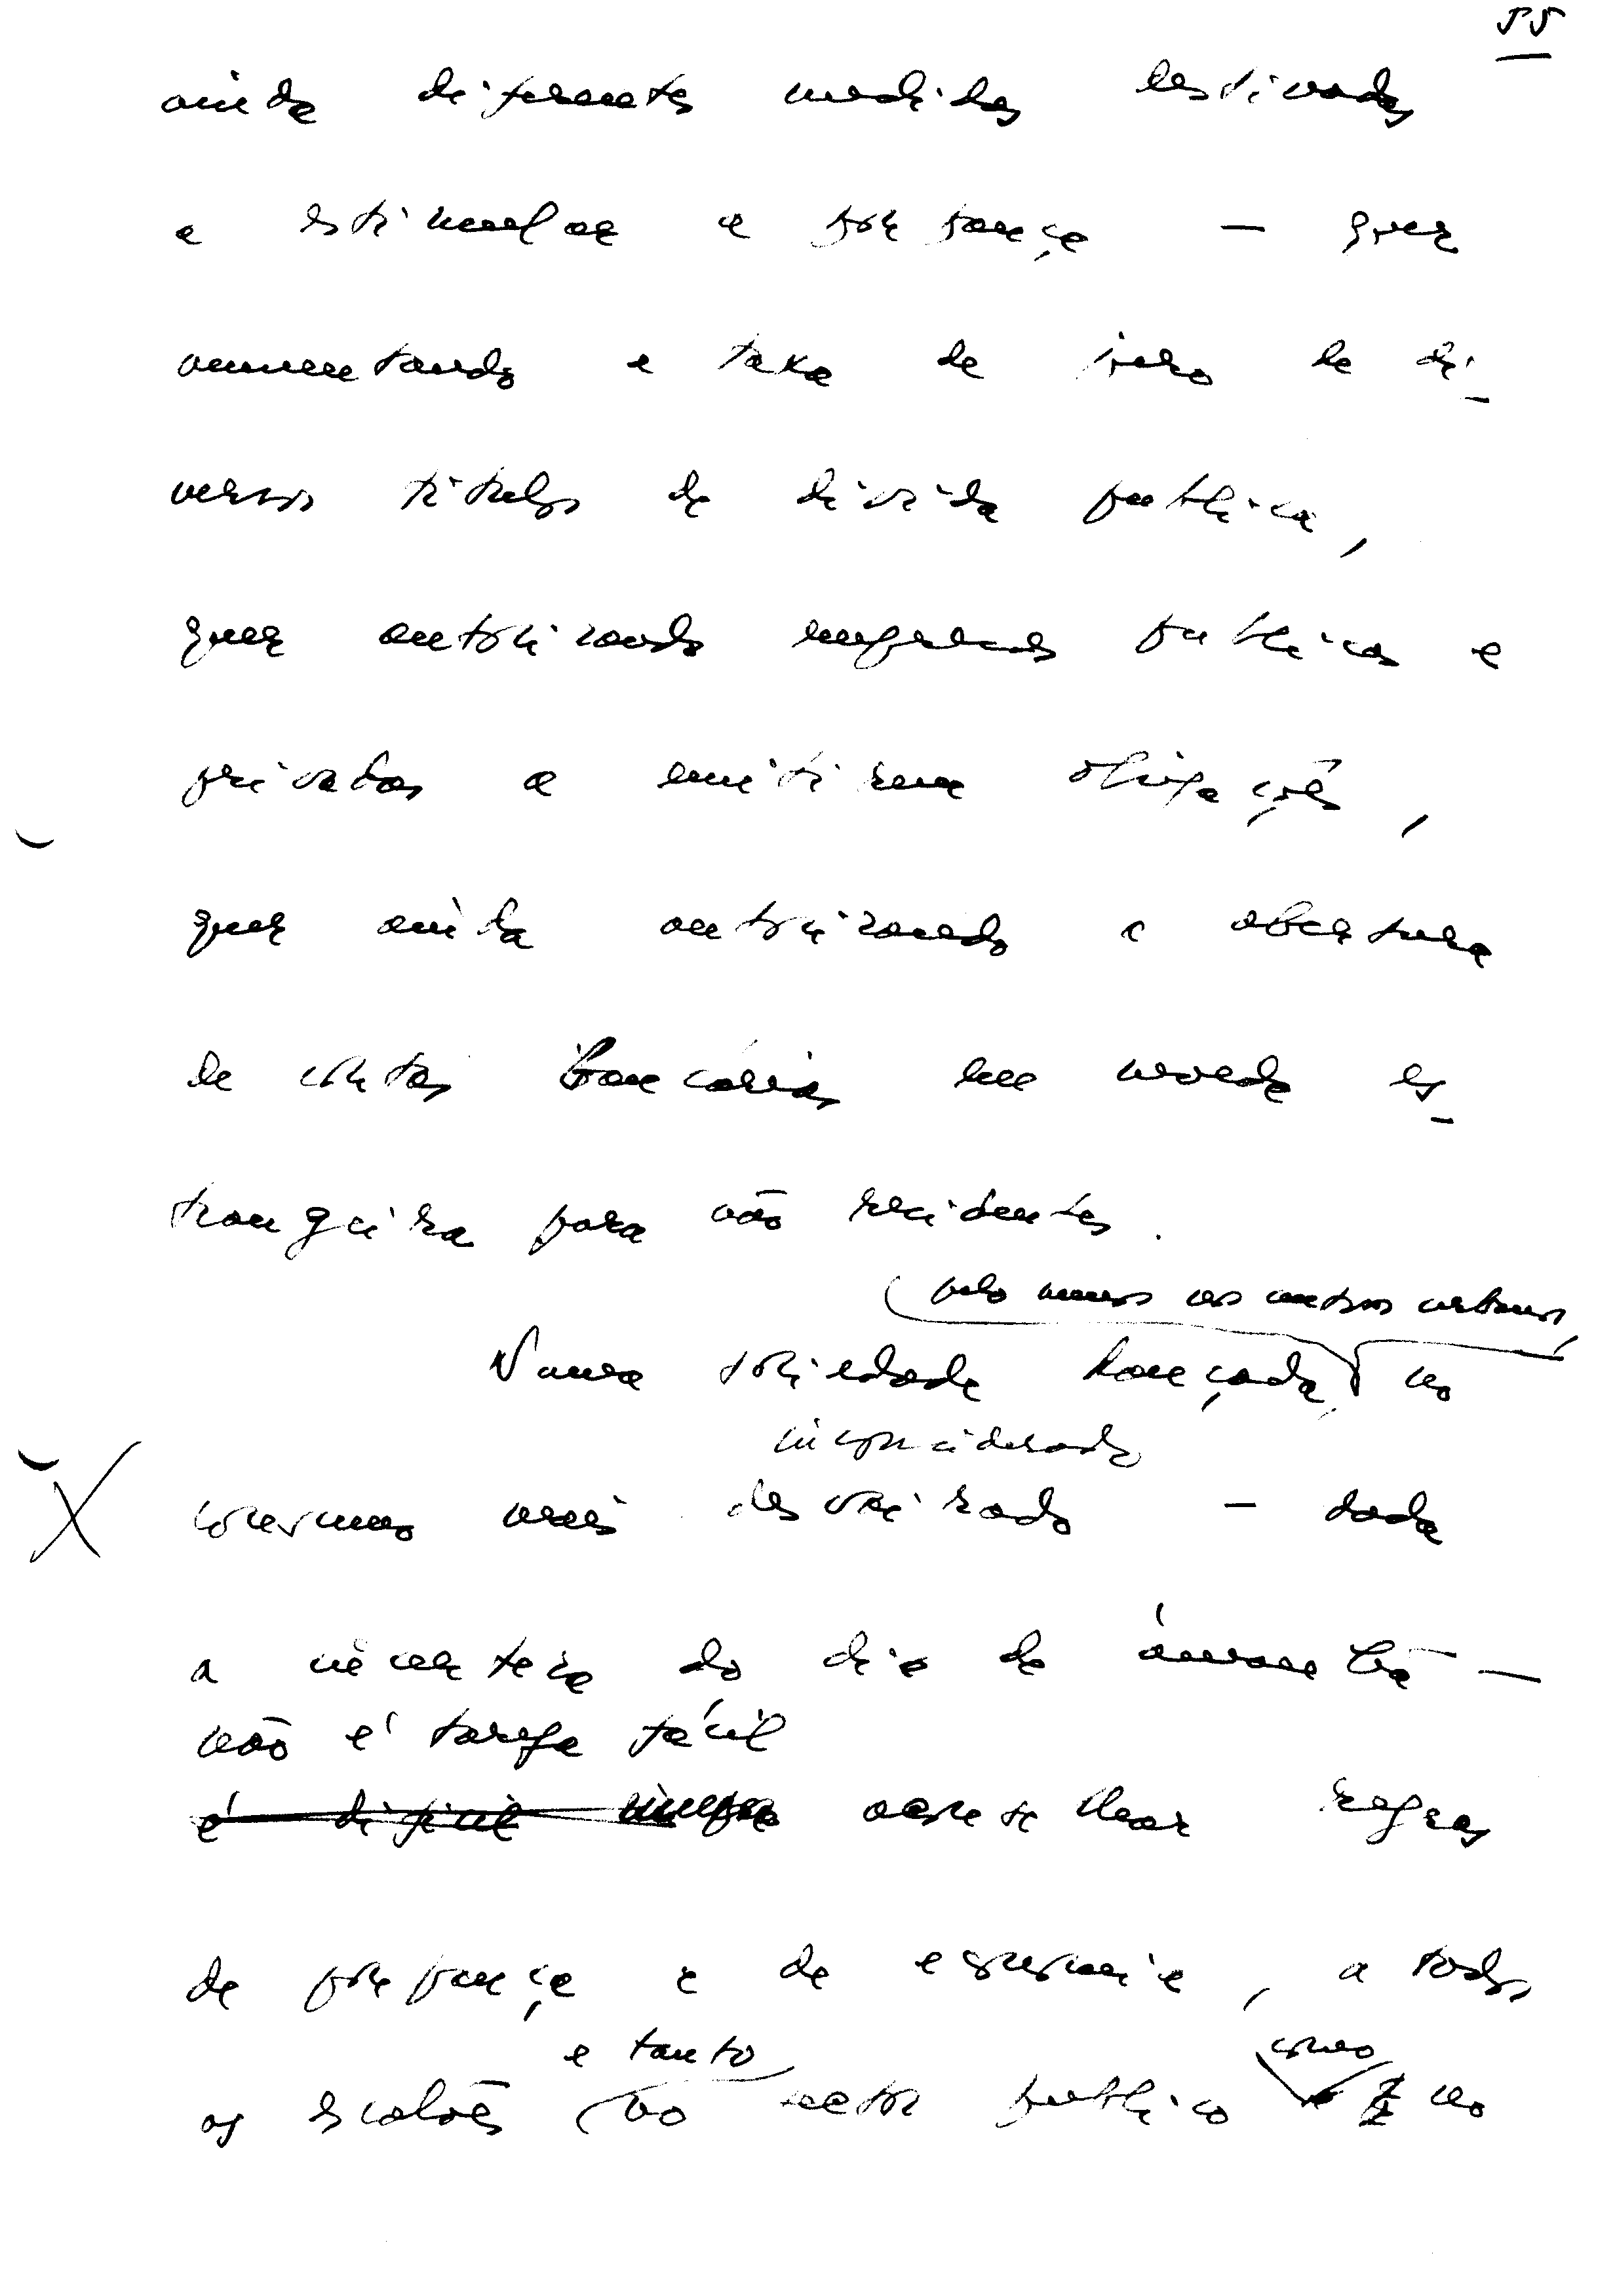 55
ainda diferentes medidas destinadas
a estimular a poupança — quer
aumentando a taxa de juro de di-
versos titulos de divida publica,
quer autorizando empresas publicas e
privadas a emitirem obrigações,
quer ainda autorizando a abertura
de contas bancárias em moeda es-
trangeira para não residentes.
pelo menos nos centros urbanos,
Numa sociedade lançada no
inconsiderado
consumo mais desvairado — dada
a incerteza do dia de ámanhã —
não é tarefa fácil
é dificil aconselhar regras
de poupança e de economia, a todos
e tanto como
os escalões no sector publico e no